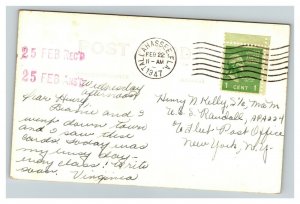 POST
TALLAHASSEE, FLA.
FEB 25
11-AM
1947
25 FEB Rec'd
25 FEB
1 CENT 1
Wednesday
afternoon
Dear Henry,
and I
went down town
and I saw these
cards. Today was
my busy day-
every class! Write
soon. Virginia
Henry W. Kelly, S1/c, MoM
U.S.S. Randall, APA224
℅ Fleet Post Office
New York, N.Y.